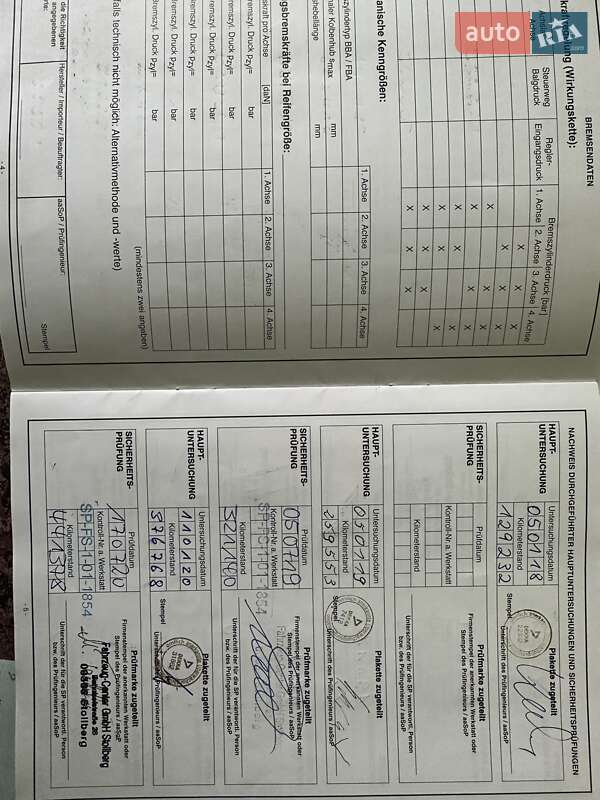 auto RIA .com
BREMSENDATEN
(Wirkungskette):
Steuerweg
Balgdruck
Regler-
Eingangsdruck
Bremszylinderdruck [bar]
1. Achse
2. Achse
3. Achse
4. Achse
X X
X X
X X
X X
X X
X X
X X
X X
anische Kenngrößen:
1. Achse
2. Achse
3. Achse
4. Achse
szylindertyp BBA / FBA
naler Kolbenhub smax mm
mm
gsbremskräfte bei Reifengröße:
skraft pro Achse [daN]
1. Achse
2. Achse
3. Achse
4. Achse
Bremszyl. Druck Pzyl= bar
Bremszyl. Druck Pzyl= bar
Bremszyl. Druck Pzyl= bar
(mindestens zwei angaben)
falls technisch nicht möglich: Alternativmethode und -werte)
die Richtigkeit
angegebenen
Hersteller / Importeur / Beauftragter:
aaSoP / Prüfingenieur:
Stempel
- 4 -
NACHWEIS DURCHGEFÜHRTER HAUPTUNTERSUCHUNGEN UND SICHERHEITSPRÜFUNGEN
HAUPT-
UNTERSUCHUNG
Untersuchungsdatum
050118
Kilometerstand
129232
Plakette zugeteilt
Stempel
Unterschrift des Prüfingenieurs / aaSoP
SICHERHEITS-
PRÜFUNG
Prüfdatum
Kontroll-Nr. a. Werkstatt
Kilometerstand
Prüfmarke zugeteilt
Firmenstempel der anerkannten Werkstatt oder
Stempel des Prüfingenieurs / aaSoP
Unterschrift der für die SP verantwortl. Person
bzw. des Prüfingenieurs / aaSoP
HAUPT-
UNTERSUCHUNG
Untersuchungsdatum
050119
Kilometerstand
259553
Plakette zugeteilt
Stempel
Unterschrift des Prüfingenieurs / aaSoP
SICHERHEITS-
PRÜFUNG
Prüfdatum
050719
Kontroll-Nr. a. Werkstatt
SP-FS-11-01-1854
Kilometerstand
321140
Prüfmarke zugeteilt
Firmenstempel der anerkannten Werkstatt oder
Stempel des Prüfingenieurs / aaSoP
Unterschrift der für die SP verantwortl. Person
bzw. des Prüfingenieurs / aaSoP
HAUPT-
UNTERSUCHUNG
Untersuchungsdatum
110120
Kilometerstand
376768
Plakette zugeteilt
Stempel
Unterschrift des Prüfingenieurs / aaSoP
SICHERHEITS-
PRÜFUNG
Prüfdatum
170720
Kontroll-Nr. a. Werkstatt
SP-FS-11-01-1854
Kilometerstand
441378
Prüfmarke zugeteilt
Firmenstempel der anerkannten Werkstatt oder
Stempel des Prüfingenieurs / aaSoP
Fahrzeug-Center GmbH Stollberg
Stollberg
Unterschrift der für die SP verantwortl. Person
bzw. des Prüfingenieurs / aaSoP
- 5 -